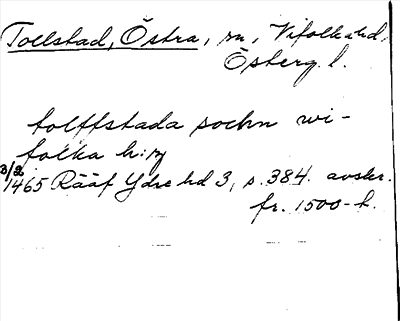 Tollstad, Östra, sn, Vifolka hd,
Österg. l.
tolffstada sochn wi-
folka h:z
3/2 1465 Rääf Ydre hd 3, s. 384. avskr.
fr. 1500-t.